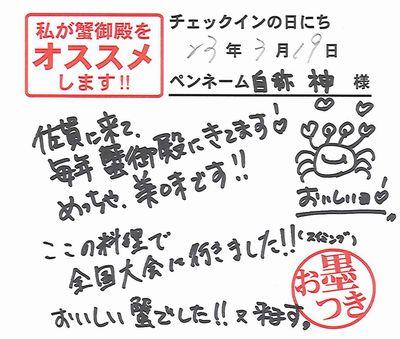 私が蟹御殿を
オススメ
します!!
チェックインの日にち
23年3月19日
ペンネーム自称 神 様
佐賀に来て、
毎年 蟹御殿にきてます!
めっちゃ、美味です!!
おいしいヨ!
ここの料理で
全国大会に行きました!!(スイミング)
おいしい蟹でした!!又来ます。
お墨つき